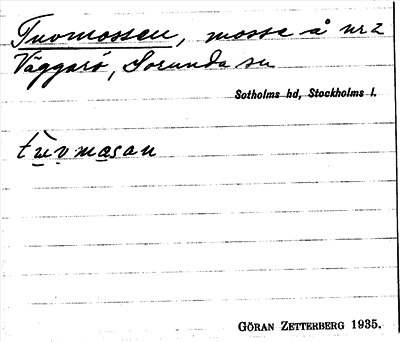 Tuvmossen, mosse å nr 2
Väggarö, Sorunda sn
Sotholms hd, Stockholms l.
tu̲v̲ma̲san
GÖRAN ZETTERBERG 1935.